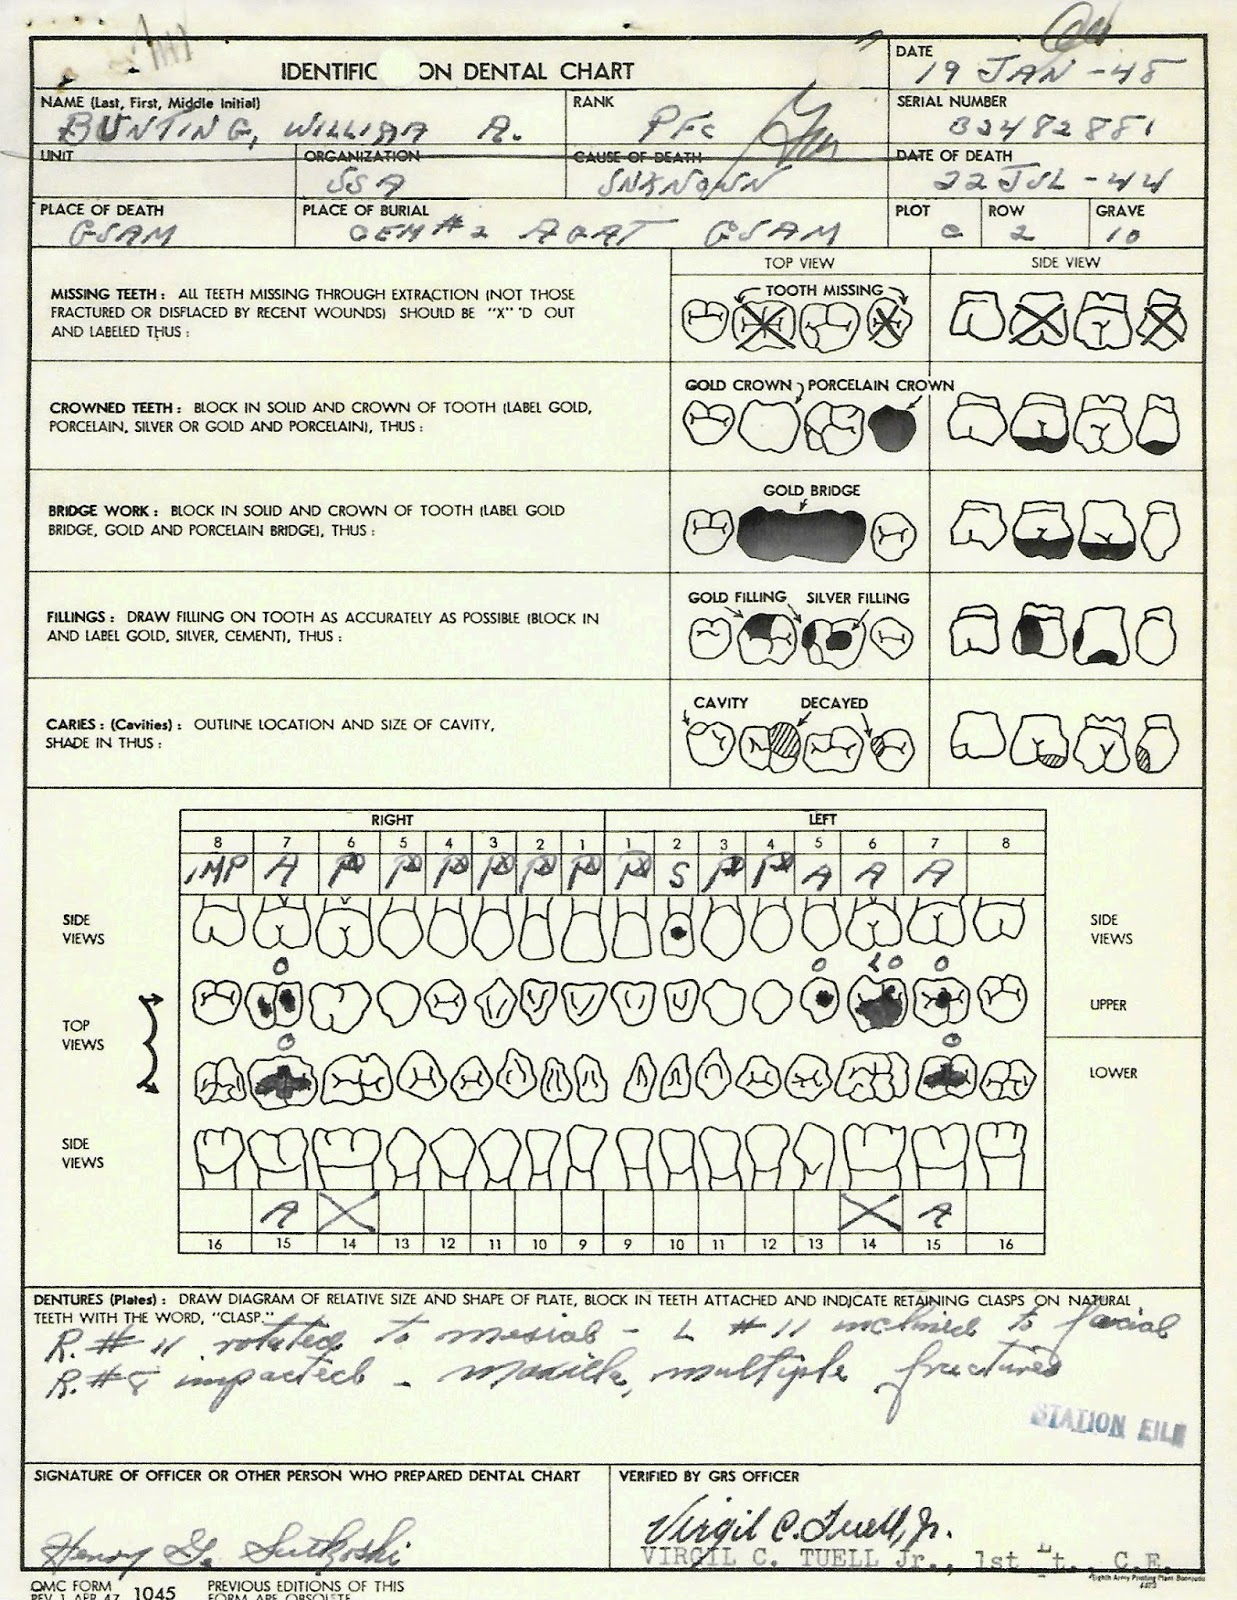 IDENTIFIC ON DENTAL CHART
DATE
19 JAN -48
NAME (Last, First, Middle Initial)
BUNTING, WILLIAM A.
RANK
PFC
SERIAL NUMBER
32482881
UNIT
ORGANIZATION
USA
CAUSE OF DEATH
UNKNOWN
DATE OF DEATH
22 JUL -44
PLACE OF DEATH
GUAM
PLACE OF BURIAL
CEM #2 AGAT GUAM
PLOT
C
ROW
2
GRAVE
10
TOP VIEW
SIDE VIEW
MISSING TEETH: ALL TEETH MISSING THROUGH EXTRACTION (NOT THOSE
FRACTURED OR DISPLACED BY RECENT WOUNDS) SHOULD BE "X" 'D OUT
AND LABELED THUS:
TOOTH MISSING
CROWNED TEETH: BLOCK IN SOLID AND CROWN OF TOOTH (LABEL GOLD,
PORCELAIN, SILVER OR GOLD AND PORCELAIN), THUS:
GOLD CROWN PORCELAIN CROWN
BRIDGE WORK: BLOCK IN SOLID AND CROWN OF TOOTH (LABEL GOLD
BRIDGE, GOLD AND PORCELAIN BRIDGE), THUS:
GOLD BRIDGE
FILLINGS: DRAW FILLING ON TOOTH AS ACCURATELY AS POSSIBLE (BLOCK IN
AND LABEL GOLD, SILVER, CEMENT), THUS:
GOLD FILLING SILVER FILLING
CARIES: (Cavities): OUTLINE LOCATION AND SIZE OF CAVITY,
SHADE IN THUS:
CAVITY DECAYED
RIGHT LEFT
8 7 6 5 4 3 2 1 1 2 3 4 5 6 7 8
IMP A PX PX PX PX PX PX PX S PX PX A A A
SIDE
VIEWS
SIDE
VIEWS
O O L O O
UPPER
TOP
VIEWS
O O
LOWER
SIDE
VIEWS
A X X A
16 15 14 13 12 11 10 9 9 10 11 12 13 14 15 16
DENTURES (Plates): DRAW DIAGRAM OF RELATIVE SIZE AND SHAPE OF PLATE, BLOCK IN TEETH ATTACHED AND INDICATE RETAINING CLASPS ON NATURAL
TEETH WITH THE WORD, "CLASP."
R. # 11 rotated to mesial - L # 11 inclined to facial
R. #8 impacted - Maxilla, multiple fractures
STATION FILE
SIGNATURE OF OFFICER OR OTHER PERSON WHO PREPARED DENTAL CHART
Henry G. Sutkoski
VERIFIED BY GRS OFFICER
Virgil C. Tuell, Jr.
VIRGIL C. TUELL Jr., 1st Lt., C.E.
QMC FORM
REV 1 APR 47 1045
PREVIOUS EDITIONS OF THIS
FORM ARE OBSOLETE
Eighth Army Printing Plant